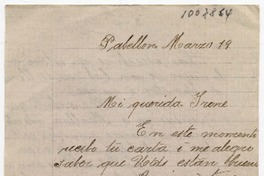 1007864
Pabellon Marzo 19
Mi querida Irene
En este momento
recibo tu carta i me alegro
saber que Uds están buenos